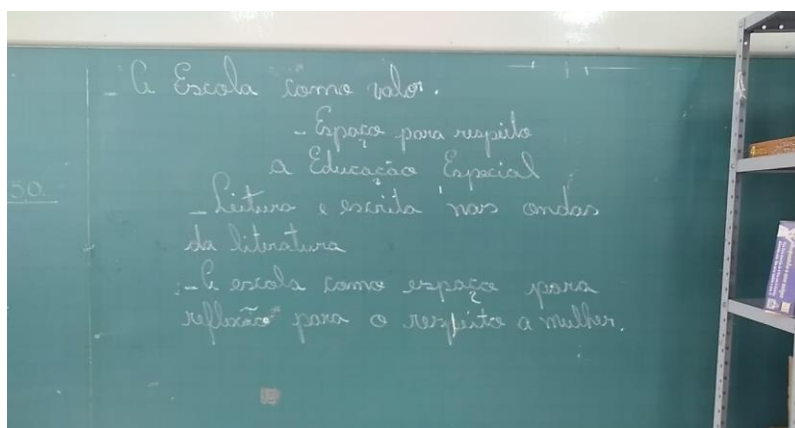 - A Escola como valor.
- Espaço para respeito
a Educação Especial
- Leitura e escrita nas ondas
da literatura
- A escola como espaço para
reflexão para o respeito a mulher.
50.